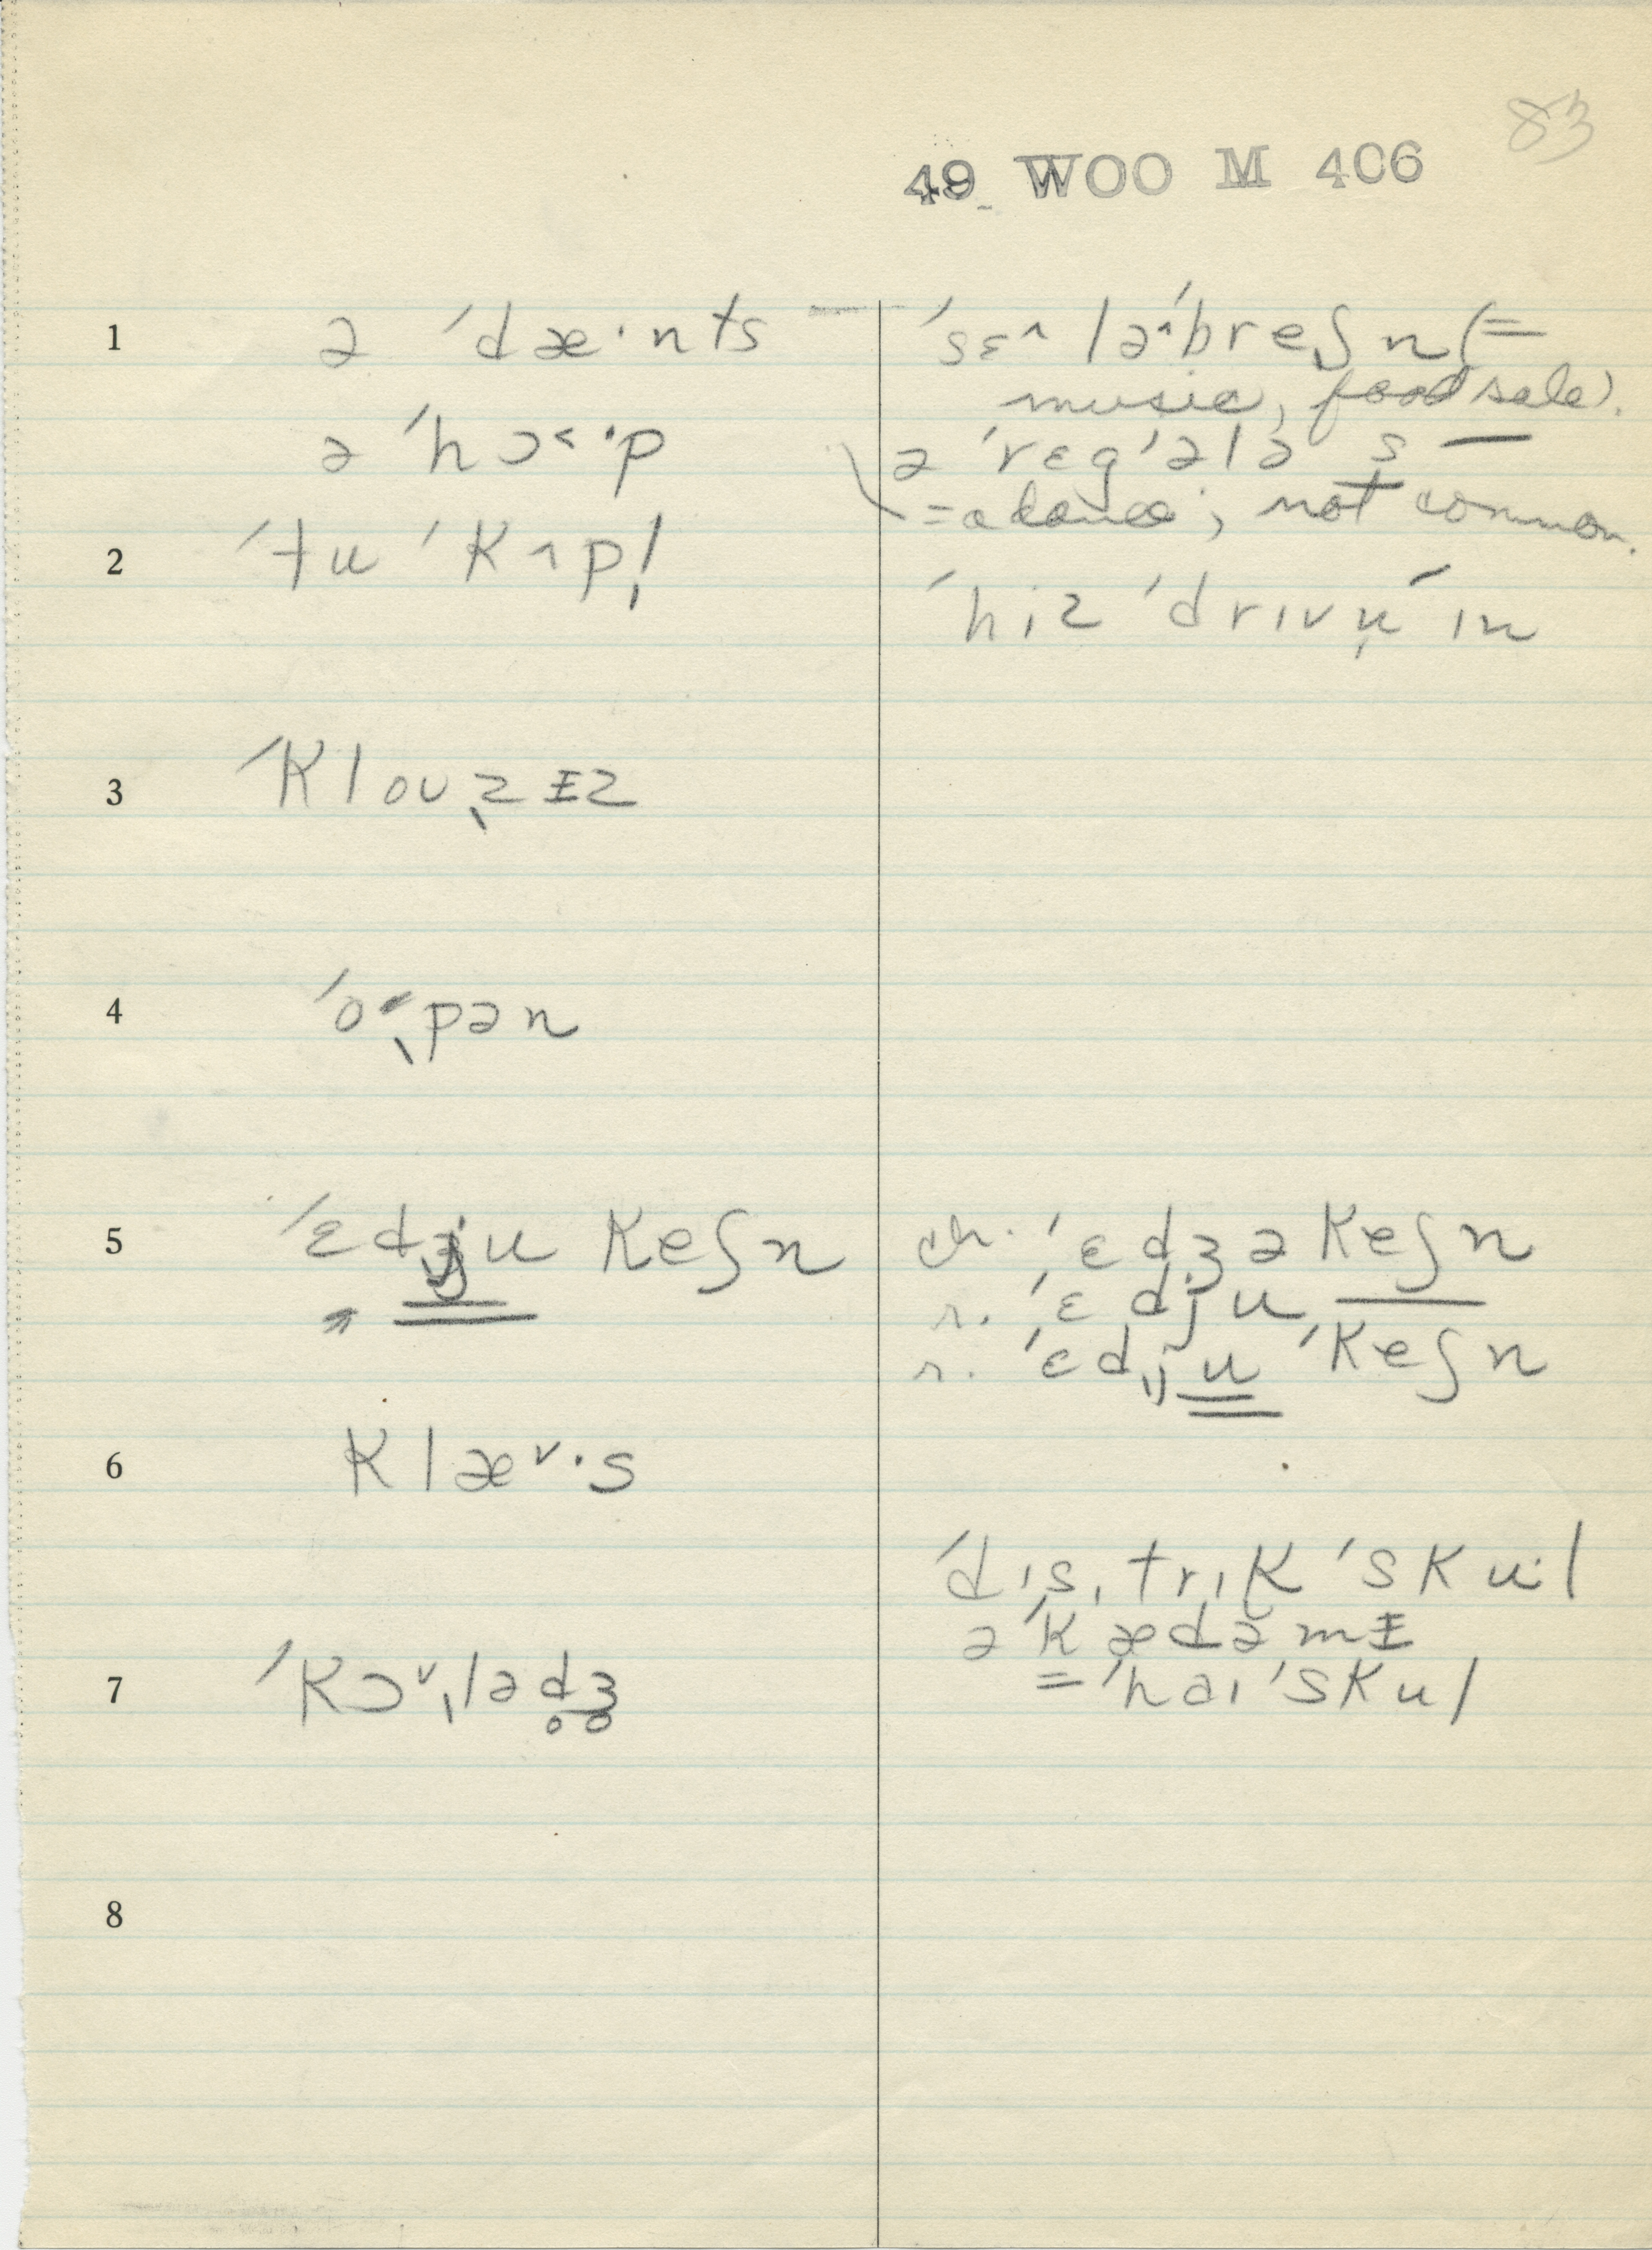 83
49 WOO M 406
1 ə ˈdæ·nts
ˈsɛ˄ lə˄ˈbreʃn (=
music, food sale).
ə ˈhɔ˂·p
ə ˈrɛgˈələ s —
= a dance; not common.
2 ˈtu ˈkʌpl̩
ˈhiz ˈdrɪvn̩ˈ ɪn
3 ˈKloʊˌzɨz
4 ˈo˂ˌpən
5 ˈɛdʒu Keʃn
ch. ˈɛdʒəKeʃn
r. ˈɛdju ___
r. ˈɛdˌju ˈKeʃn
6 Klæ˅·s
ˈdɪsˌtrɪK ˈsKu·l
əˈKædəmɨ
7 ˈKɔ˅ˌləd̥ʒ̊
= ˈhaɪ ˈsKul
8